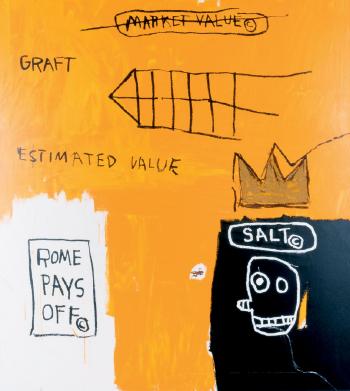 MARKET VALUE ©
GRAFT
ESTIMATED VALUE
SALT ©
ROME
PAYS
OFF ©